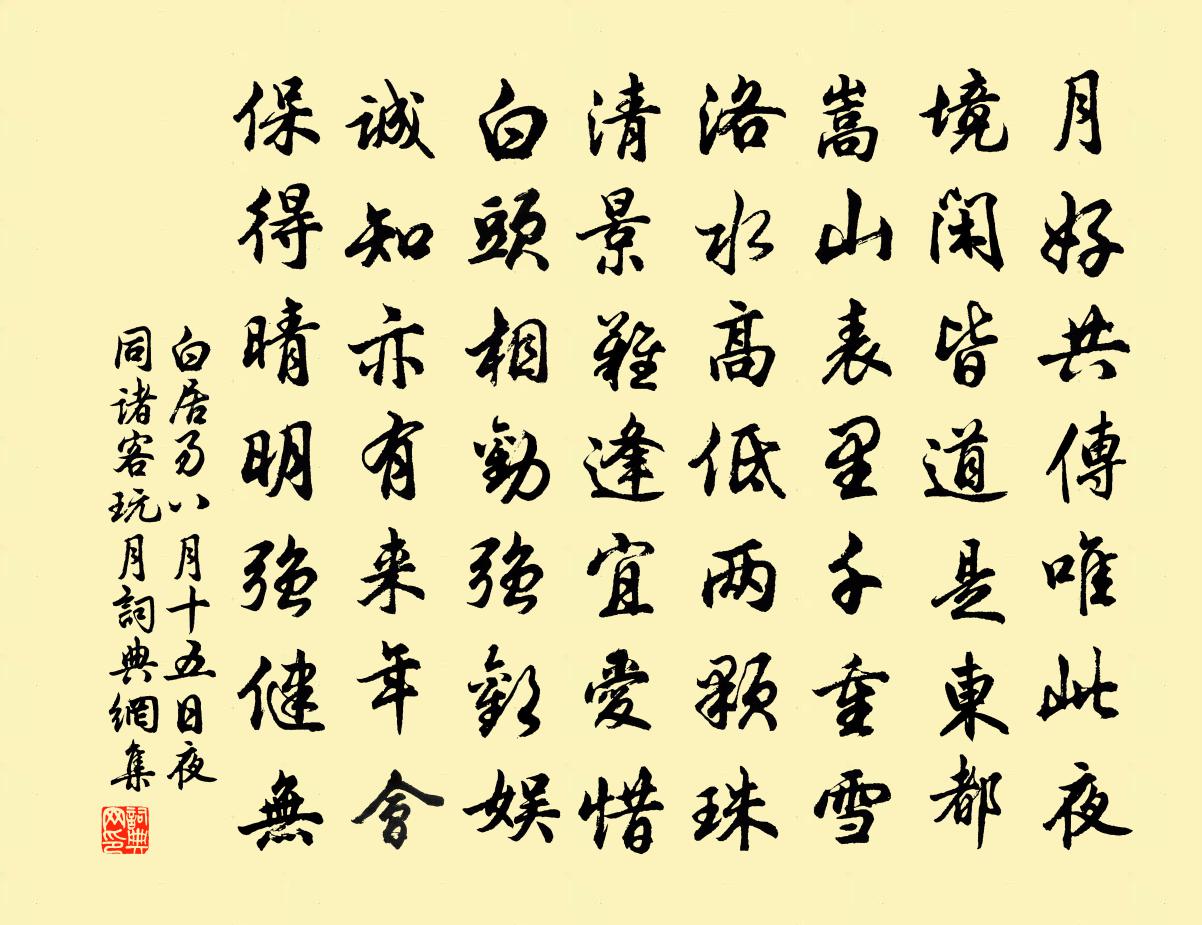 月好共傳唯此夜
境閑皆道是東都
嵩山表里千重雪
洛水高低兩顆珠
清景難逢宜愛惜
白頭相勸強歡娛
誠知亦有来年會
保得晴明強健無
白居易八月十五日夜
同諸客玩月詞典網集
詞典
网印